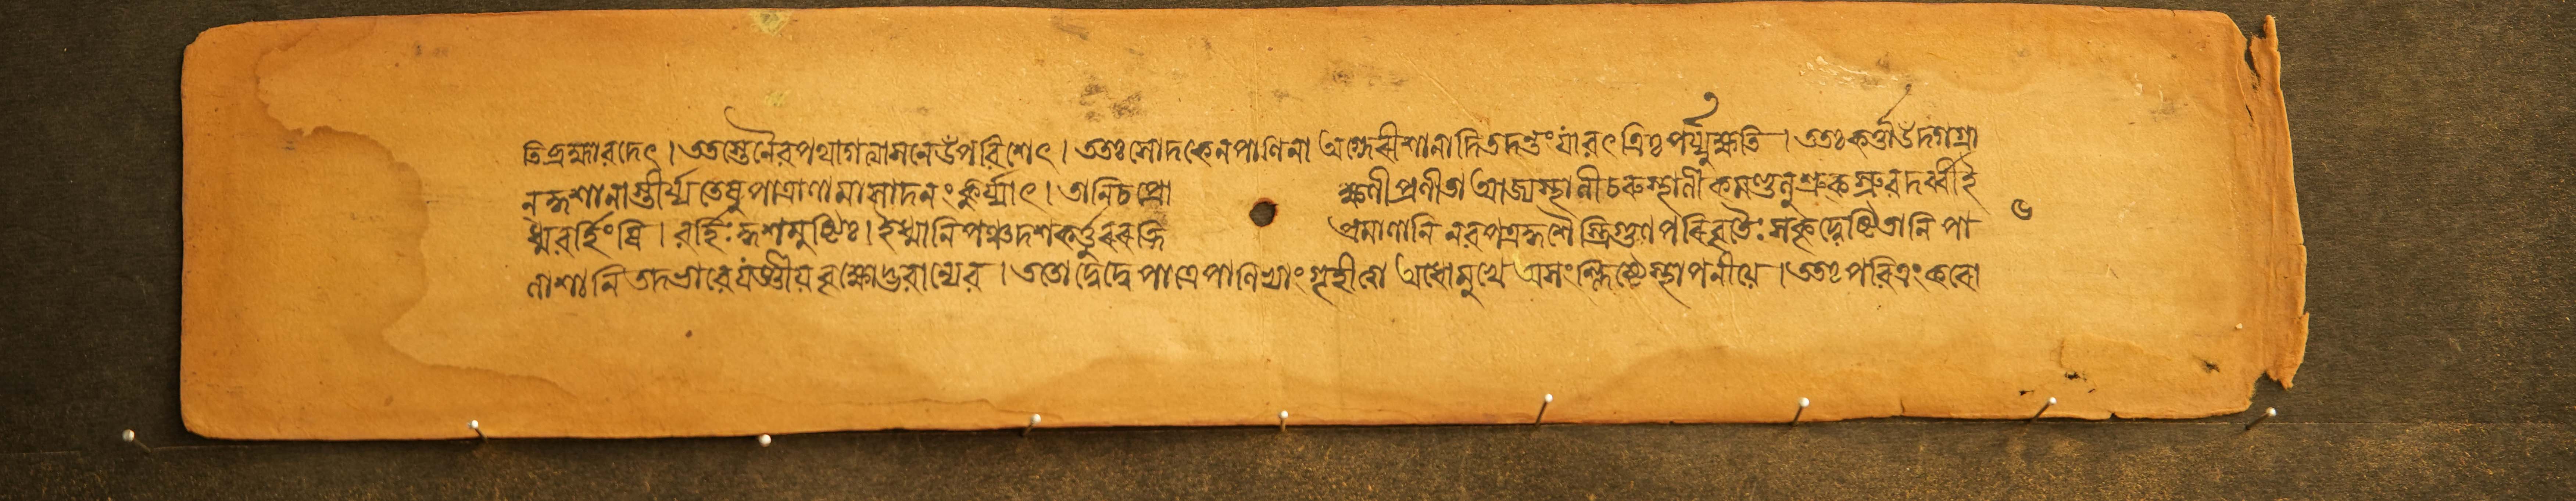 তিব্রহ্মাবদেৎ। ততস্তেনৈবপথাগত্যাসনেউপবিশেৎ। ততঃসোদকেনপাণিনা অগ্নেরীশানাদিতদন্তংযাবৎত্রিঃপর্য্যুক্ষতি। ততঃকর্ত্তাউদগগ্রা
নকুশানাস্তীর্য্যতেষুপাত্রাণামাসাদনংকুর্য্যাৎ। তানিচপ্রো ক্ষণীপ্রণীতাআজ্যস্থালীচরুস্থালীকমণ্ডলুশ্রুকশ্রুবদর্ব্বীই
ধ্মবর্হিংষি। বর্হিঃকুশমুষ্টিঃ। ইধ্মানিপঞ্চদশকর্ত্তুররত্নি প্রমাণানিনবপত্রকুশৈস্ত্রিগুণপরিবৃতৈঃসকৃদ্বেষ্টিতানিপা ৬
লাশানিতদভাবেযজ্ঞীয়বৃক্ষোদ্ভবান্যেব। ততোদ্বেদ্বেপাত্রেপাণিভ্যাংগৃহীত্বা অধোমুখেঅসংশ্লিষ্টেস্থাপনীয়ে। ততঃপবিত্রংকরো